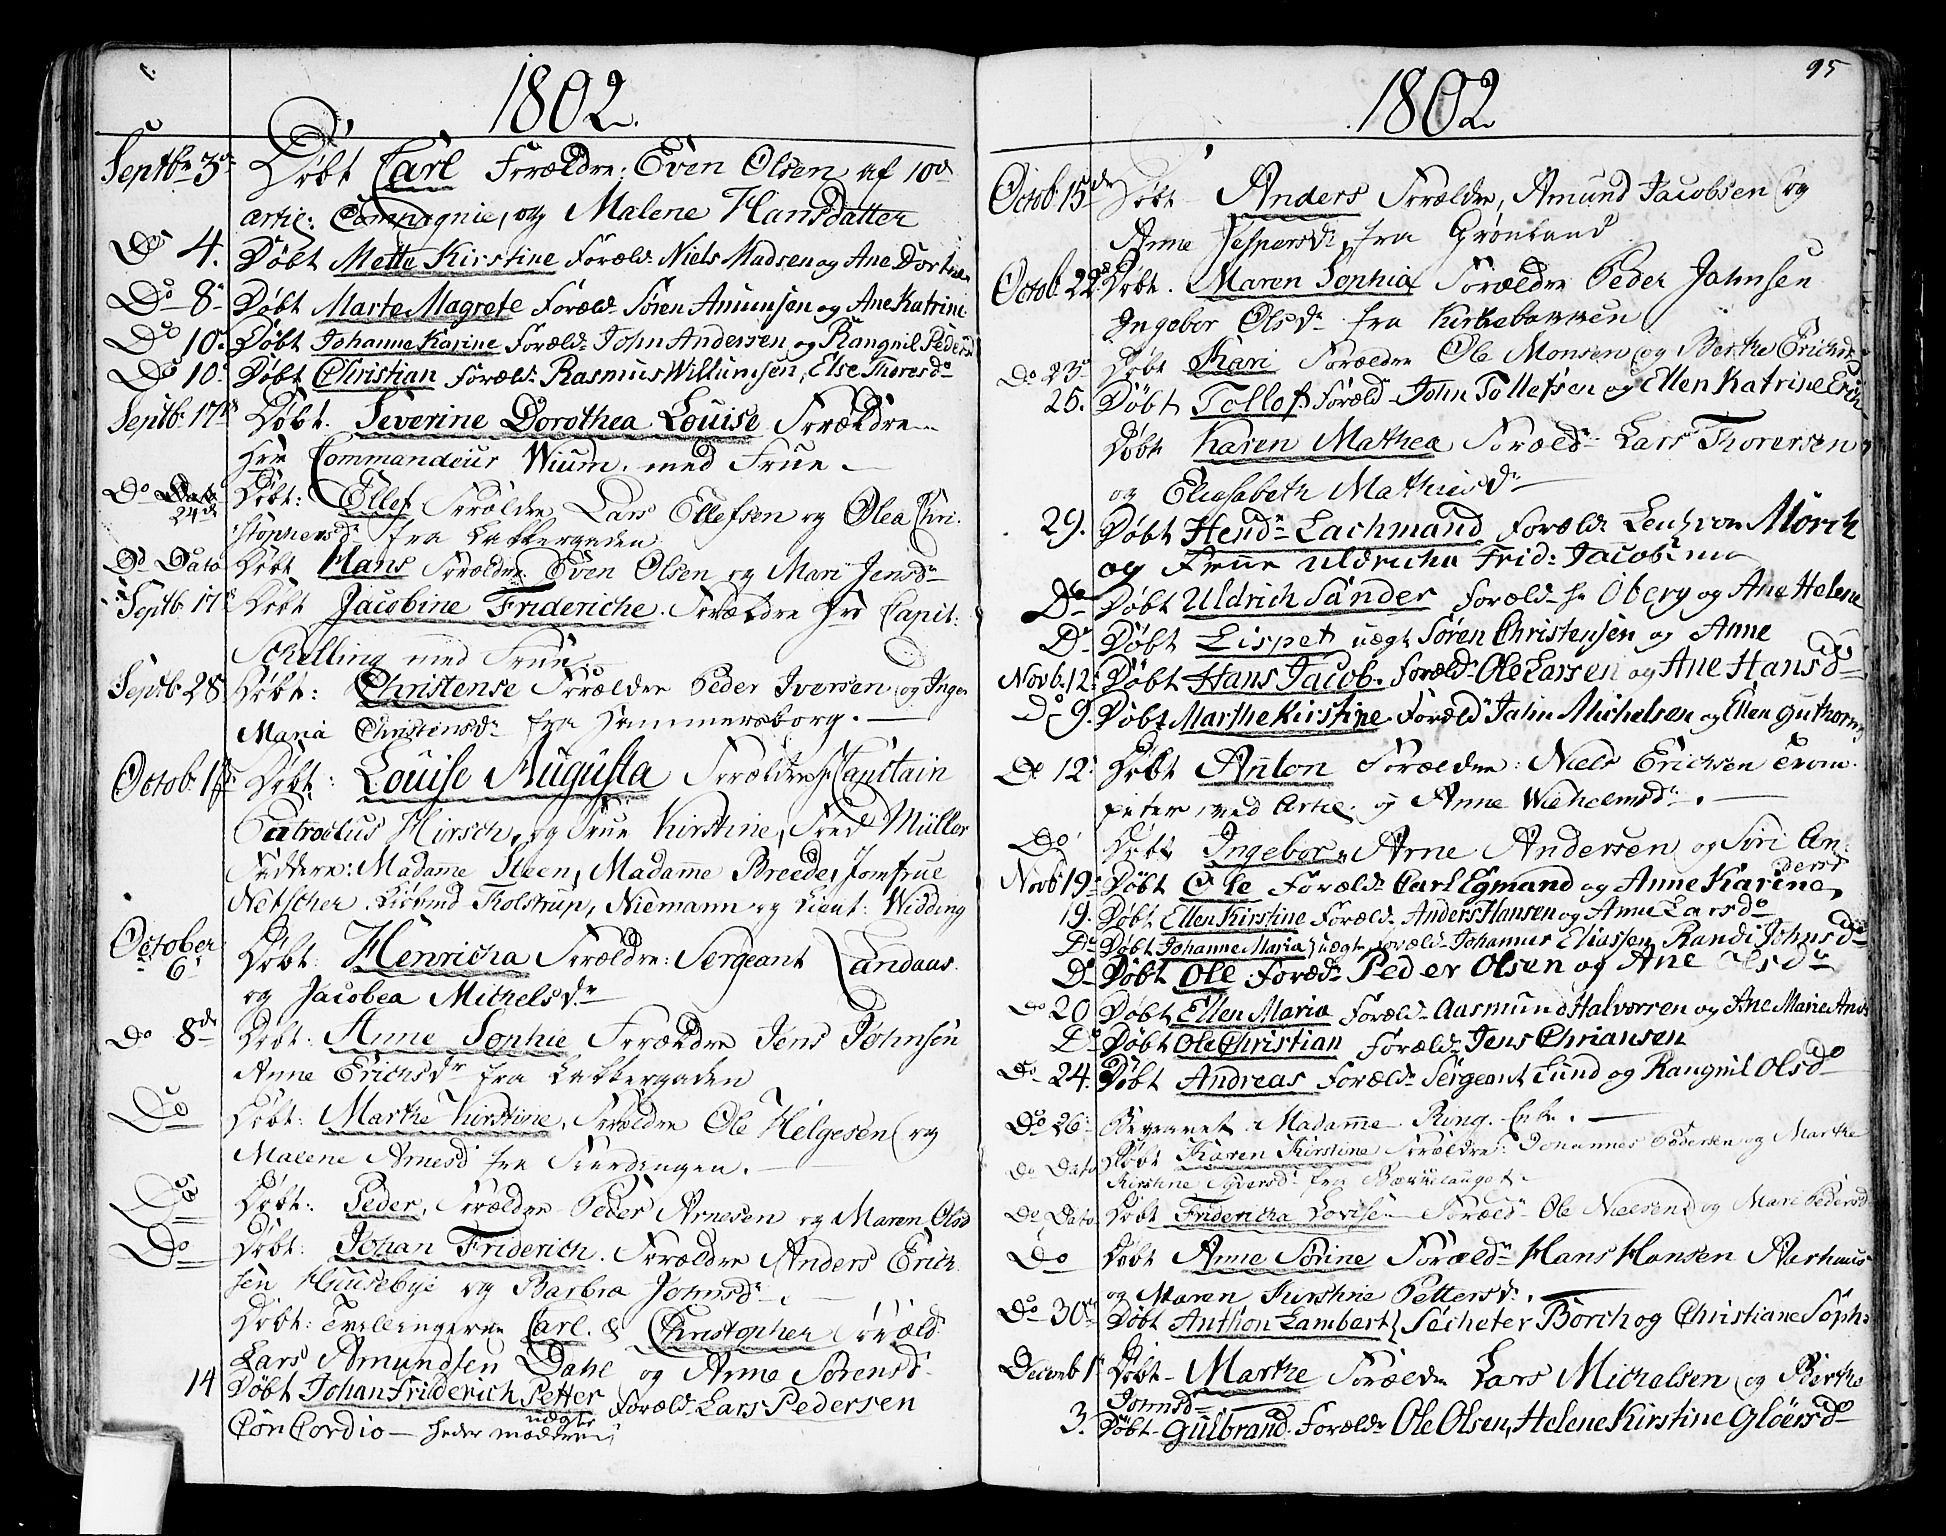 1802.
Septbr 3de Døbt Carl Forældre: Even Olsen af 10de
artil: Compagnie, og Malene Hansdatter
Do 4. Døbt Mette Kirstine Foræld: Niels Madsen og Ane Dorthea
Do 8 Døbt Marte Magrete Foræld: Sören Amunsen og Ane Katrine
Do 10 Døbt Johanne Karine Foræld: John Andersen og Rangnil Pedersd
Do 10 Døbt Christian Foræld: Rasmus Willumsen, Else Thoresdr
Septb. 17de Døbt. Severine Dorothea Louise Forældre
Hrr Commandeur Wium. med Frue
Do Dato 24de Døbt: Ellef Forældre Lars Ellefsen og Olea Chri-
stophersdr fra Lakkergaden
Do Dato Døbt Hans Forældre Even Olsen og Mari Jensdr
Septb. 17de Døbt Jacobine Frideriche. Forældre Hrr Capit:
Schelling med Frue
Septb. 28 Døbt: Christense Forældre Peder Iversen og Inger
Maria Christensdr fra Hammersborg.
Octob. 1ste Døbt: Louise Augusta Forældre Hr Capitain
Patroclus Hirsch, og Frue Kirstine, Fred Müller
Faddere: Madame Steen, Madame Breede, Jomfrue
Netscher. Kiöbmd Tolstrup, Niemann og Lieut: Widding
October 6 Døbt: Henricha Forældre: Sergeant Landaas.
og Jacobea Michelsdr
Do 8de Døbt: Anne Sophie Forældre Jens Johnsen
Anne Erichsdr fra Lakkergaden
Do Døbt: Marthe Kirstine. Forældre Ole Helgesen og
Malene Arnesd fra Fierdingen.
Do Døbt: Peder. Forældre Peder Arnesen og Maren Olsd
Do Døbt: Johan Friderich. Forældre Anders Erich
sen Huusebye og Barbra Johnsdr.
Døbt: Tvillingerne Carl. & Christopher Foræld
Lars Amundsen Dahl og Anne Sörensd.
14 Døbt Johan Friderich Petter Foræld: Lars Pedersen
ConCordio — udgter
95
1802
Octob. 15de Døbt Anders Forældre, Amund Jacobsen og
Anne Jespersdr fra Grönland
Octob. 22de Døbt. Maren Sophia Forældre Peder Johnsen
Ingebor Olsdr fra Kirkebakken
Do 23de Døbt Kari Forældre Ole Monsen og Berthe Erichsd
25. Døbt Tollof Foræld John Tollefsen og Ellen Katrine Erich
Døbt Karen Mathea Foræld: Lars Thorersen
og Elisabeth Mathiesdr
29. Døbt Hendr Lachmand Foræld: Leut: von Mörch
og Frue Uldricha Frid: Jacobina
Do Døbt Uldrich Sander Foræld: hr Oberg og Ane Helene
Do Døbt Lispet uægt Sören Christensen og Anne
Novb. 12 Døbt Hans Jacob. Foræld: Ole Larsen og Ane Hansdr
Do 9. Døbt Marthe Kirstine Foræld Jahn Michelsen og Ellen Guthorms
Do 12 Døbt Anton Forældre: Niels Erichsen Trom-
peter ved Artil. og Anne Wilhelmsdr.
Do Døbt Ingebor. Arne Andersen og Siri An-
dersd
Novb 19 Døbt Ole Foræld: Carl Egmand og Anne Karine
19. Døbt Ellen Kirstine Foræld: Anders Hansen og Anne Larsdr
Do Døbt Johanne Maria uægt Foræld: Johannes Eliassen Randi Johnsdr
Do Døbt Ole Foræd: Peder Olsen og Ane Olsdr
Do 20 Døbt Ellen Maria Foræld: Aasmund Halvorsen og Ane Marie And
Do Døbt Ole Christian Foræld: Jens Chriansen
Do 24. Døbt Andreas Foræld: Sergeant Lund og Rangnil Olsdr
Do 26 Begravet: Madamme Ring. Enke.
Do Dato Døbt Karen Kirstine Forældre: Johannes Pedersen og Marthe
Kirstine Syversdr fra Bakkehauget
Do Dato Døbt Fridericha Lovise Foræld: Ole Nielsen og Mari Pedersd
Do Døbt Anne Sörine Foræld: Hans Hansen Aarhuus
og Maren Kirstine Pettersdr.
Do 30te Døbt Anthon Lambert Secheter Borch og Christiane Soph:
Decemb 1 Døbt Marthe Forældre Lars Michelsen og Berthe
Johnsdr
3. Døbt Gulbrand. Foræld: Ole Olsen, Helene Kirstine Gloersdr